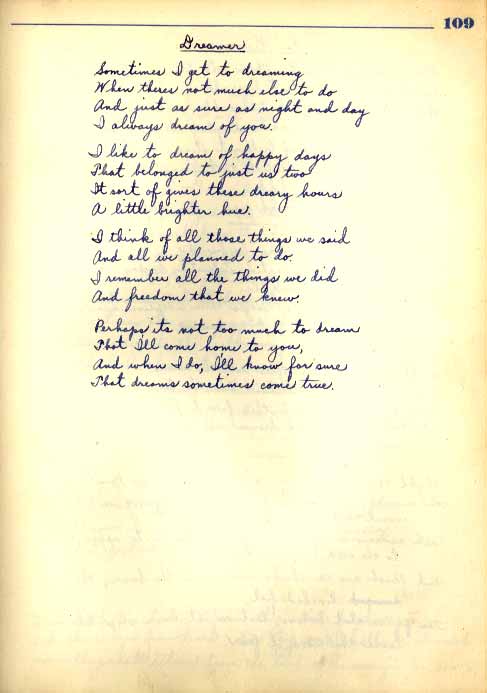 109
Dreamer
Sometimes I get to dreaming
When theres not much else to do
And just as sure as night and day
I always dream of you.
I like to dream of happy days
That belonged to just us two
It sort of gives these dreary hours
A little brighter hue.
I think of all those things we said
And all we planned to do.
I remember all the things we did
And freedom that we knew.
Perhaps its not too much to dream
That I'll come home to you,
And when I do, I'll know for sure
That dreams sometimes come true.